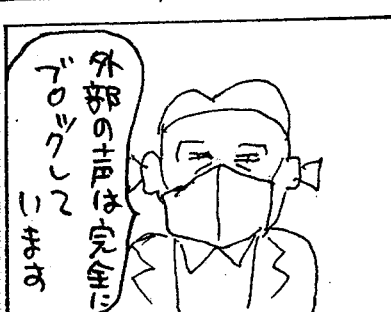 外部の声は完全に
ブロックして
います